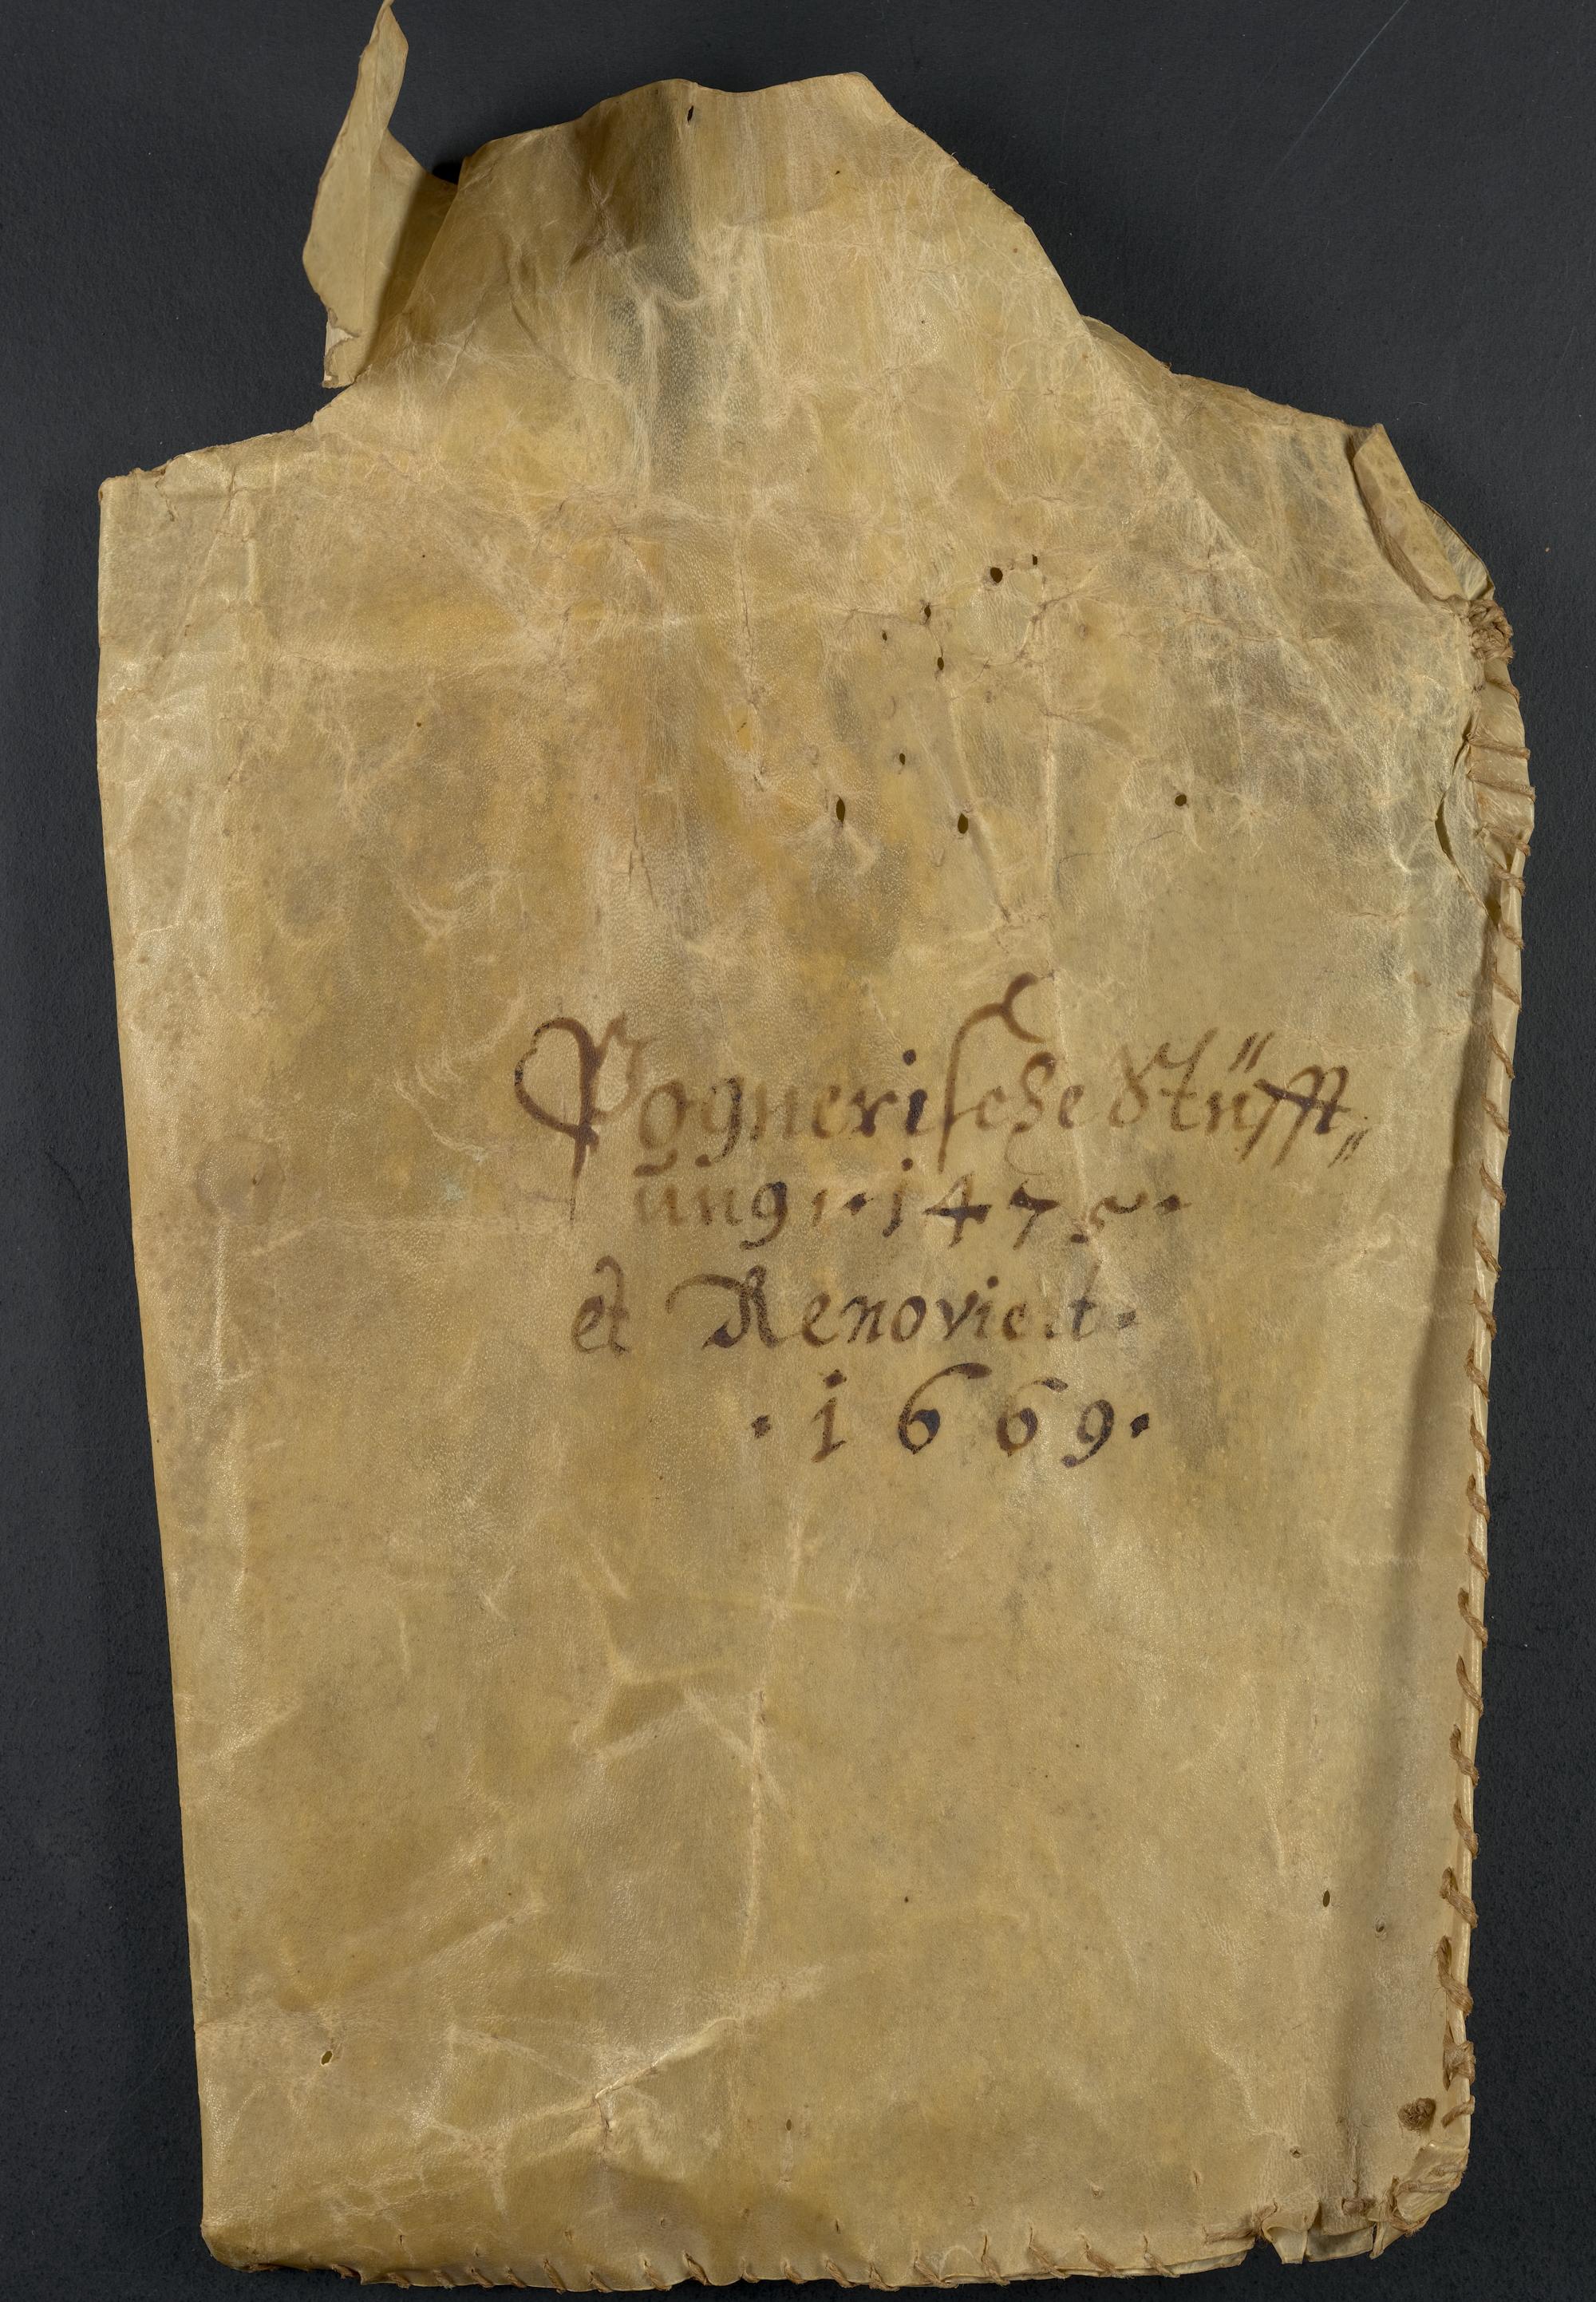 Pognerische Stüfft„
ung, · 1475 ·
et Renoviert ·
· 1669 ·